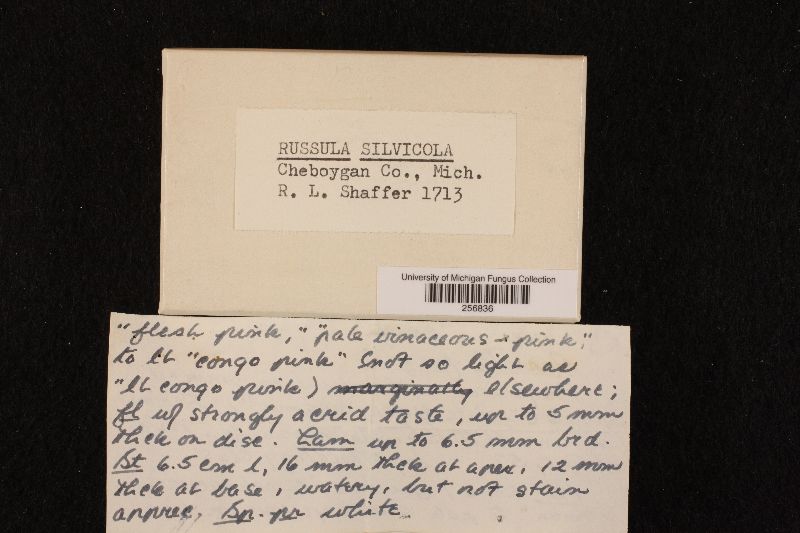 RUSSULA SILVICOLA
Cheboygan Co., Mich.
R. L. Shaffer 1713
University of Michigan Fungus Collection
256836
"flesh pink," "pale vinaceous-pink,"
to lt "congo pink" (not so light as
"lt congo pink) marginally elsewhere;
fl w/ strongly acrid taste, up to 5 mm
thck on disc. Lam up to 6.5 mm brd.
St 6.5 cm l, 16 mm thck at apex, 12 mm
thck at base, watery, but not stain
apprec. Sp. pr white